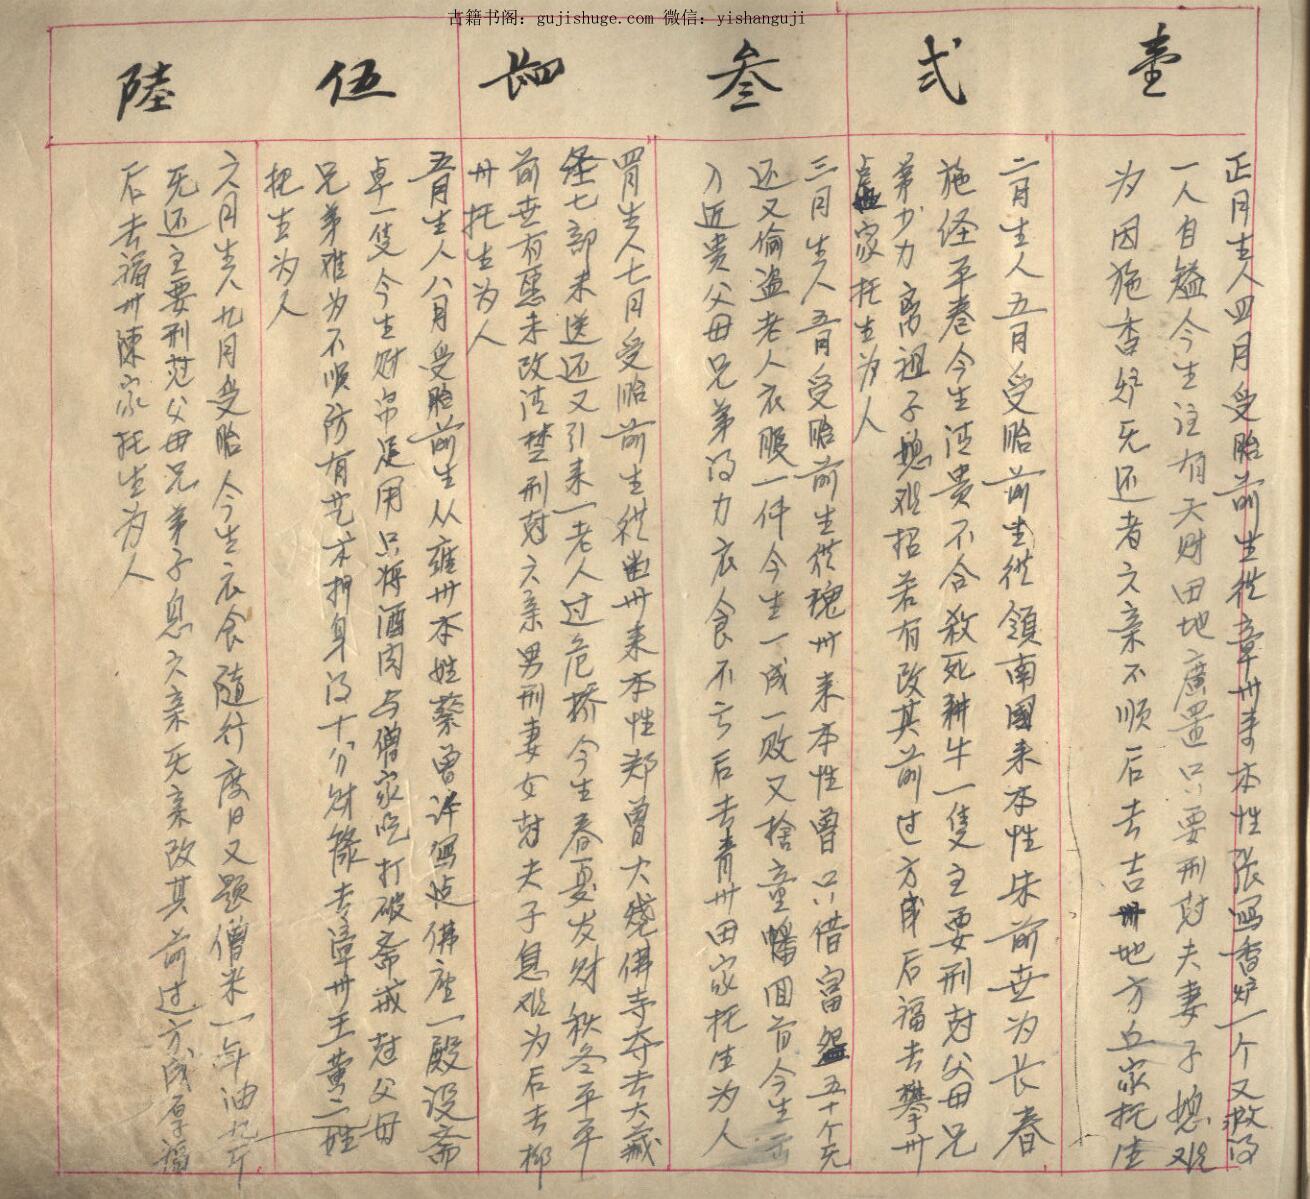 古籍书阁：gujishuge.com 微信：yishanguji
壹
正月生人四月受胎前生從章州来本性張写香炉一个又救得
一人自縊今生注有天財田地廣置只要刑尅夫妻子媳难
为因施香炉无还者六亲不顺后去吉州地方丘家托生
弍
二月生人五月受胎前生從領南國来本性朱前世为长春
施经平卷今生清贵不合殺死耕牛一隻主要刑尅父母兄
弟少力离祖子媳难招若有改其前过方成后福去攀州
盧家托生为人
叁
三月生人五月受胎前生從魏州来本性曾口借富盤五十个无
还又偷盗老人衣服一件今生一成一败又捨童幡回前今生
入近贵父母兄弟得力衣食不亏后去青州田家托生为人
肆
四月生人七月受胎前生從幽州来本性郑曾大燒佛寺夺去大藏
经七部未送还又引来一老人过危桥今生春夏发财秋冬平平
前世有惡未改清楚刑尅六亲男刑妻女尅夫子息难为后去柳
州托生为人
伍
五月生人八月受胎前生从雍州本姓蔡曾许写佛座一殿没斋
卓一隻今生财帛足用只将酒肉与僧家吃打破斋戒尅父母
兄弟难为不顺防有艺术押身得十分财祿去漳州王黄二姓
把生为人
陸
六月生人九月受胎人今生衣食随行度日又题僧米一年油九斤
死还主要刑尅父母兄弟子息六亲无亲改其前过方成厚福
后去福州陳家托生为人